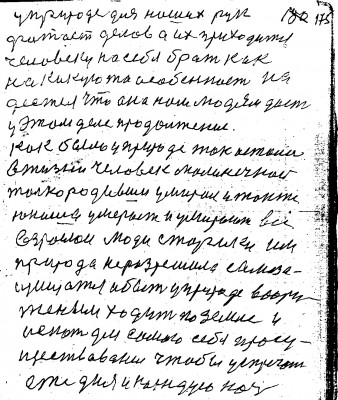 у природе для наших рук 175
хватает делов а их приходится
человеку на себя брать как
на какую та особенност на
деется что она нам людям даст
у этом деле продолжение.
как было у природе так осталось
в жизни человек маленичкой
толко родившим умирал и тоже
юноша умерает и умирают все
взрослои люди старики им
природа не разрешила самоза-
щищатся а быть у природе воору-
женым ходить по земле и
для самого себя прасу-
ществавания чтобы устречат
еже дня и каждую ноч